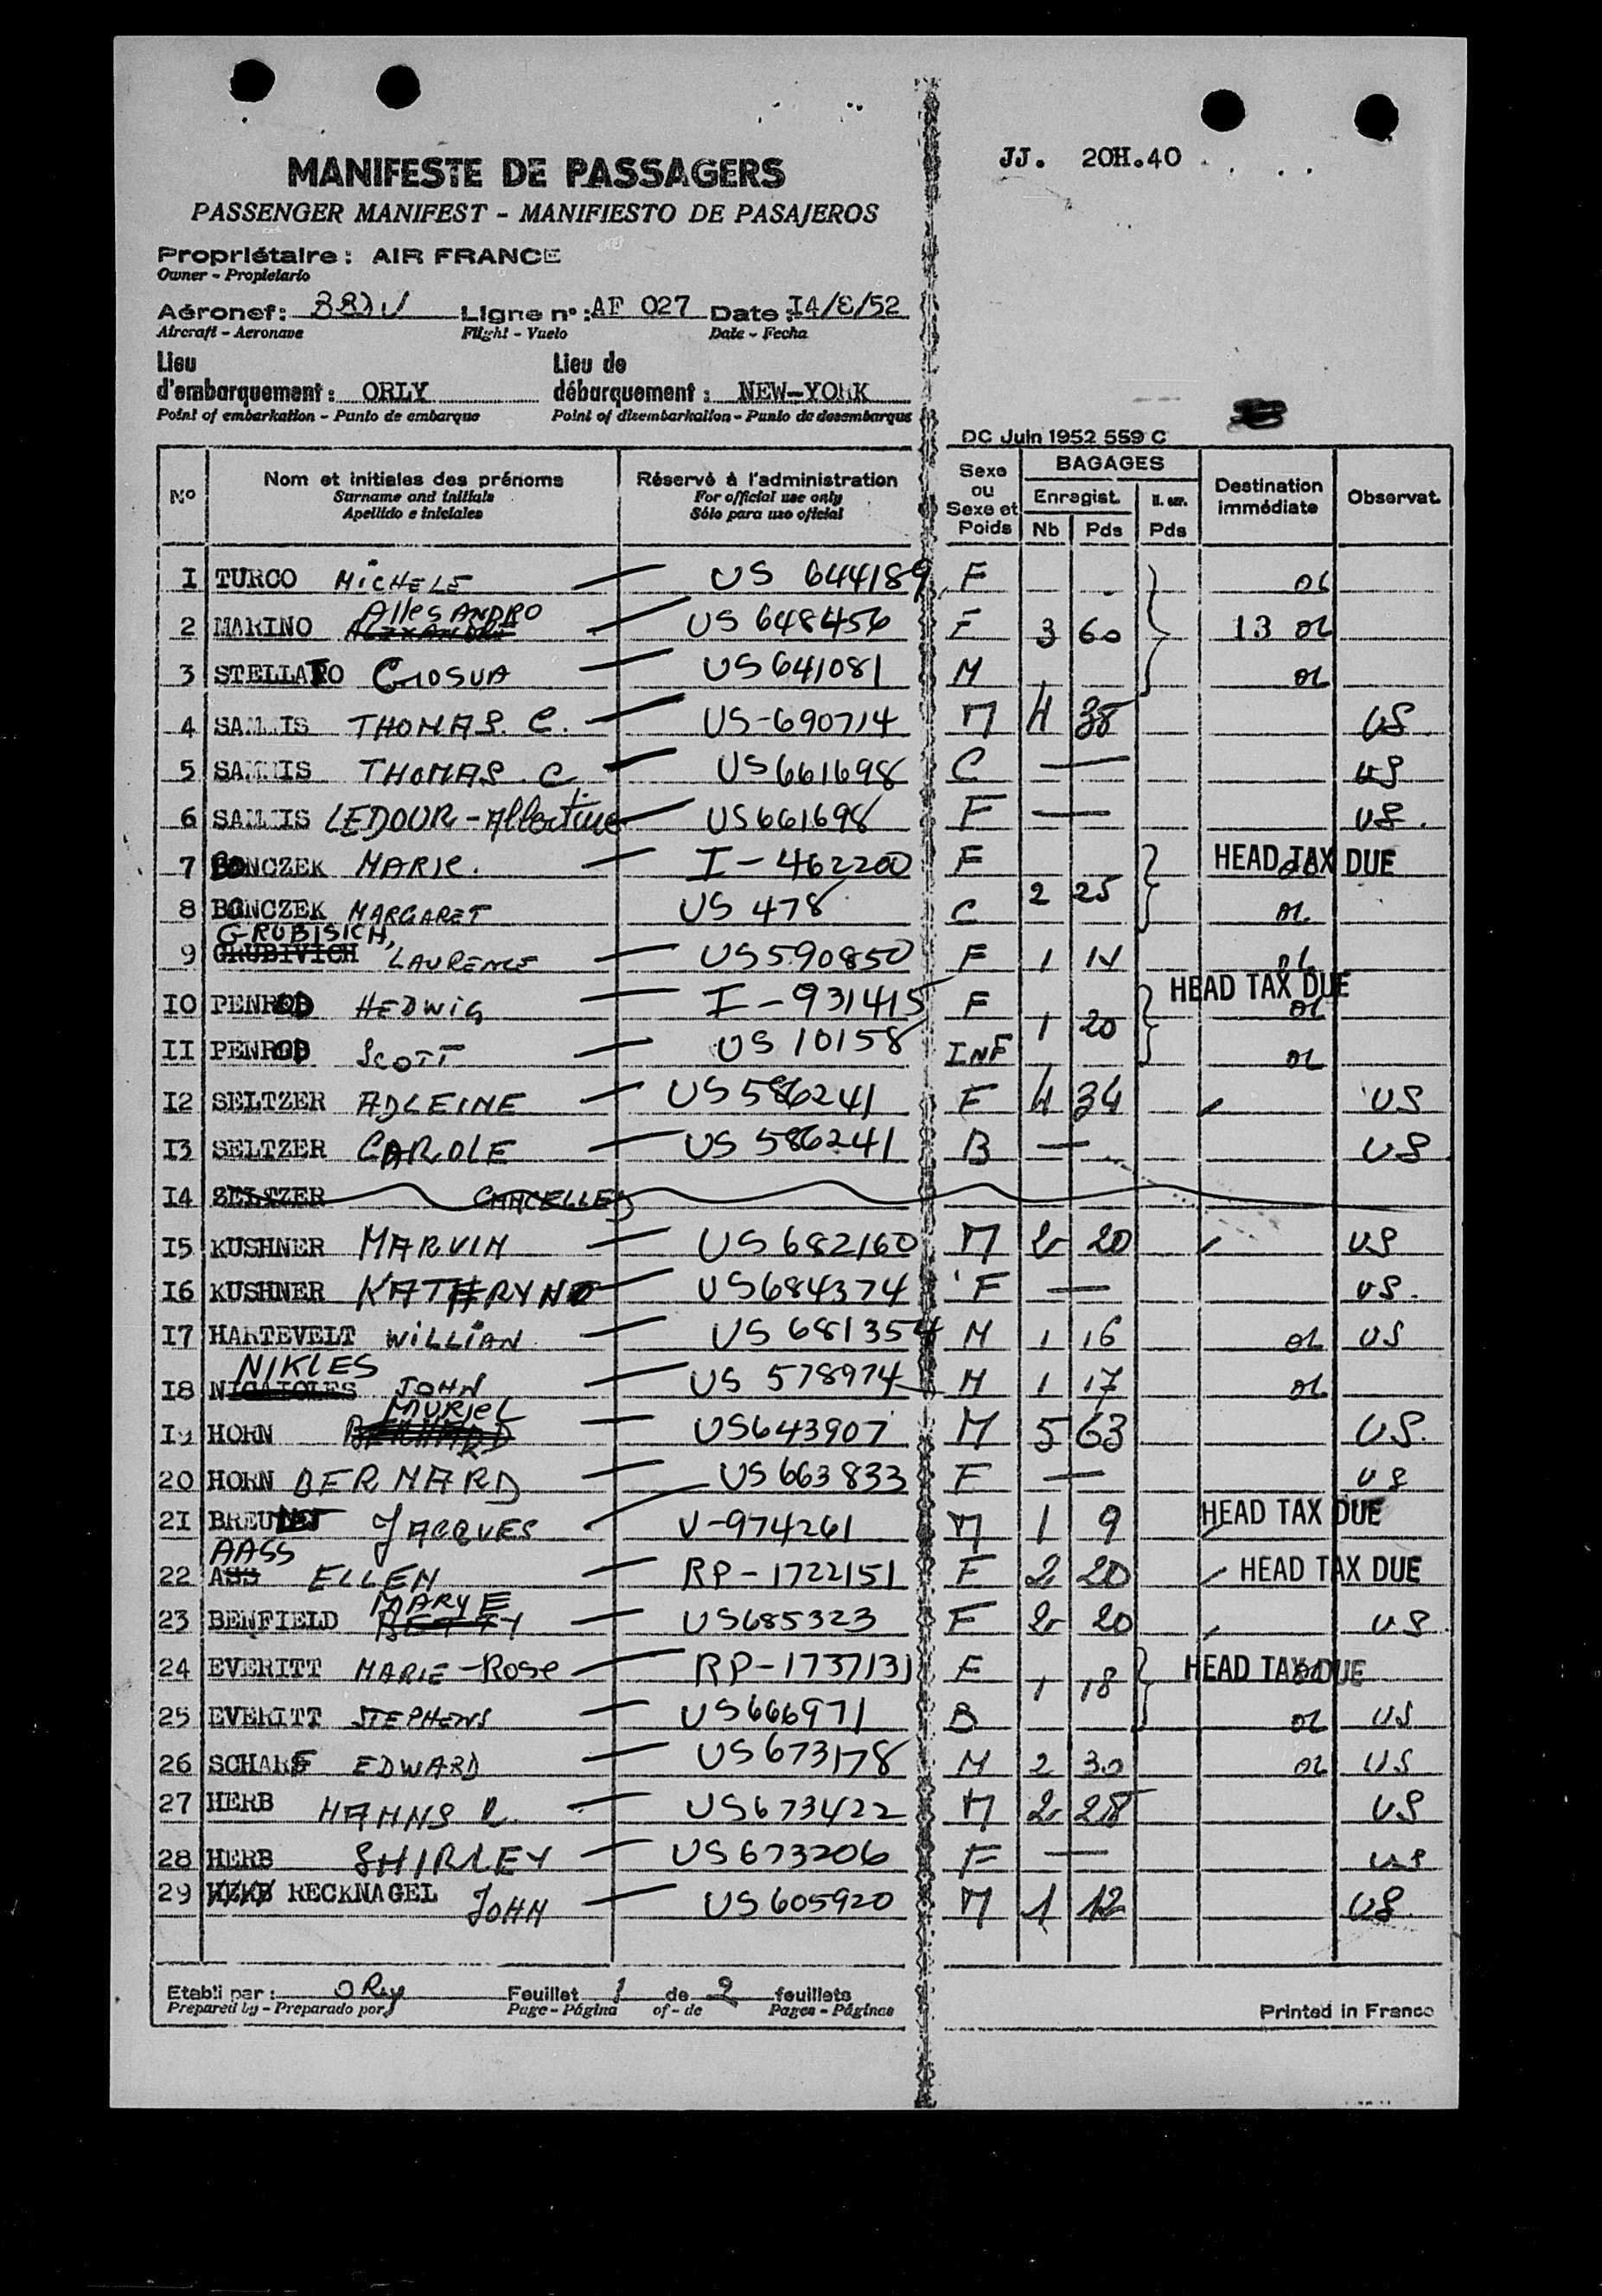 JJ. 20H.40
MANIFESTE DE PASSAGERS
PASSENGER MANIFEST - MANIFIESTO DE PASAJEROS
Propriétaire : AIR FRANCE
Owner - Propietario
Aéronef : Ligne n° : AF 027 Date : I4/8/52
Aircraft - Aeronave Flight - Vuelo Date - Fecha
Lieu d'embarquement : ORLY Lieu de débarquement : NEW-YORK
Point of embarkation - Punto de embarque Point of disembarkation - Punto de desembarque
DC Juin 1952 559 C
N° Nom et initiales des prénoms Réservé à l'administration Sexe ou Sexe et Poids BAGAGES Destination immédiate Observat.
Surname and initials For official use only Enregist.
Apellido e iniciales Sólo para uso oficial Nb Pds Pds
I TURCO MiCHELE US 644189 F OL
2 MARINO AllESANDRO US 648456 F 3 60 13 OL
3 STELLATO GIOSUA US 641081 M OL
4 SAMMIS THOMAS. C. US-690714 M 4 38 US
5 SAMMIS THOMAS C US 661698 C — US
6 SAMMIS LEDOUR - Albertine US 661698 F — US.
7 BONCZEK MARIE. I - 462200 F HEAD TAX DUE
8 BONCZEK MARGARET US 478 C 2 25 OL
9 GRUBIVICH GRUBISICH, LAURENCE US 590850 F 1 14 OL
IO PENROD HEDWiG I - 931415 F HEAD TAX DUE OL
II PENROD SCOTT US 10158 INF 1 20 OL
I2 SELTZER ADLEINE US 586241 F 4 34 US
I3 SELTZER CAROLE US 586241 B — US
I4 SELTZER CANCELLED
I5 KUSHNER MARVIN US 682160 M 2 20 US
I6 KUSHNER KATHRYNE US684374 F — US.
I7 HARTEVELT WiLLiAN US 681354 M 1 16 OL US
I8 NIKLES JOHN US 578974 M 1 17 OL
I9 HORN MURIEL BERNARD US643907 M 5 63 US.
20 HORN BERNARD US 663833 F — US
2I BREUNET JACQUES V-974261 M 1 9 HEAD TAX DUE
22 ASS AASS ELLEN RP-1722151 F 2 20 HEAD TAX DUE
23 BENFIELD MARY E BETTY US685323 F 2 20 US
24 EVERITT MARIE-Rose RP-1737131 F HEAD TAX DUE
25 EVERITT STEPHENS US666971 B 1 18 OL US
26 SCHARF EDWARD US 673178 M 2 30 OL US
27 HERB HAHNS R. US673422 M 2 28 US
28 HERB SHIRLEY US 673206 F — US
29 HERB RECKNAGEL JOHN US 605920 M 1 12 US.
Etabli par : Feuillet 1 de 2 feuillets
Prepared by - Preparado por Page - Página of - de Pages - Páginas
Printed in France